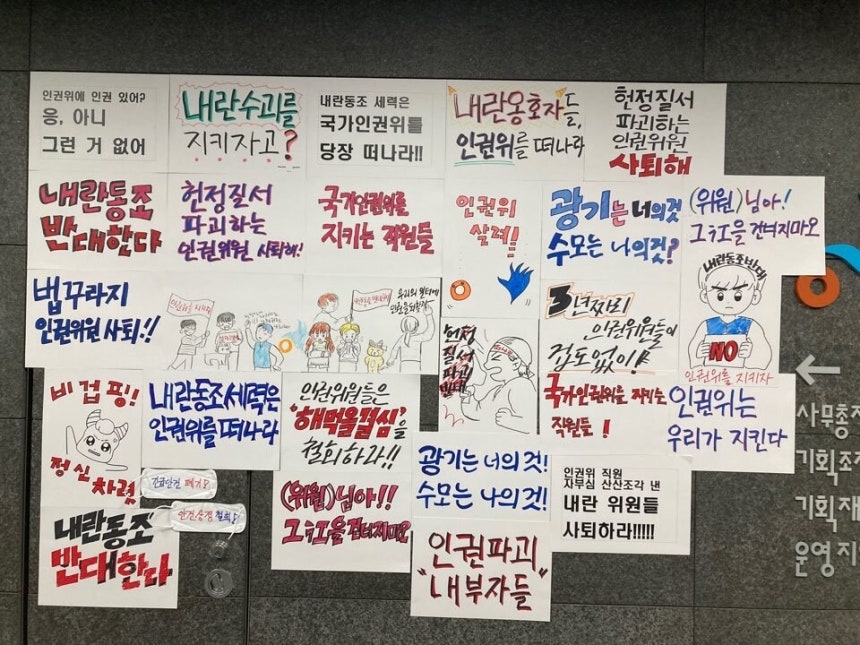 인권위에 인권 있어?
응, 아니
그런 거 없어
내란수괴를
지키자고?
내란동조 세력은
국가인권위를
당장 떠나라!!
내란옹호자들,
인권위를 떠나라
헌정질서
파괴하는
인권위원
사퇴해
내란동조
반대한다
헌정질서
파괴하는
인권위원 사퇴해!
국가인권위를
지키는 직원들
인권위
살려!!
광기는 너의것
수모는 나의것?
(위원)님아!
그 강을 건너지마오
법꾸라지
인권위원 사퇴!!
3년짜리
인권위원들이
겁도 없이!
내란동조반대
NO
인권위를 지키자
헌정
질서
파괴
반대
비겁핑!
정신차렷
내란동조세력은
인권위를 떠나라
인권위원들은
'해먹을결심'을
철회하라!!
국가인권위를 지키는
직원들!
인권위는
우리가 지킨다
긴급안건 폐기!
안건상정 철회!
(위원)님아!!
그 강을 건너지마오
광기는 너의 것!
수모는 나의 것!
인권위 직원
자부심 산산조각 낸
내란 위원들
사퇴하라!!!!!
내란동조
반대한다
인권파괴
"내부자들"
사무총
기획조정
기획재
운영지